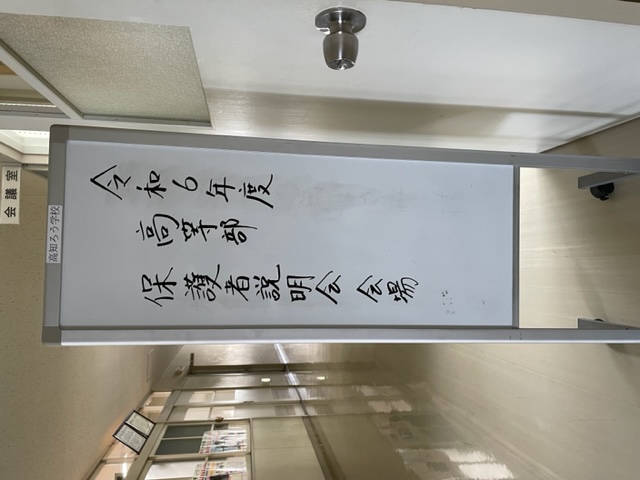 会議室
高知ろう学校
令和6年度
高等部
保護者説明会 会場